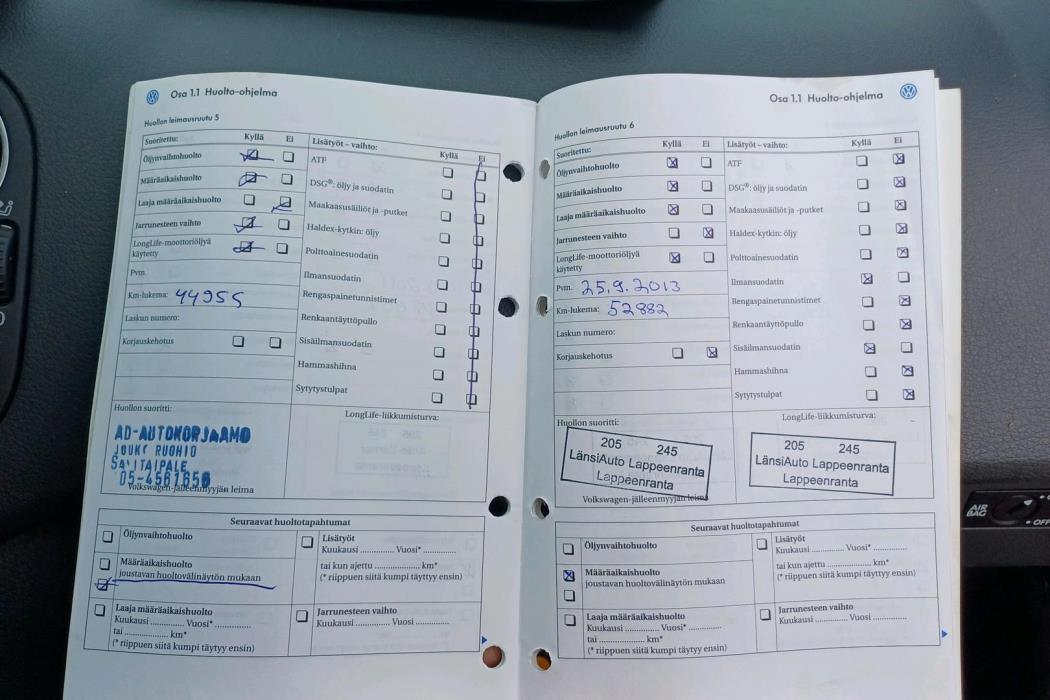 Osa 1.1 Huolto-ohjelma
Huollon leimausruutu 5
Suoritettu: Kyllä Ei
Öljynvaihtohuolto
Määräaikaishuolto
Laaja määräaikaishuolto
Jarrunesteen vaihto
LongLife-moottoriöljyä
käytetty
Pvm.
Km-lukema: 44955
Laskun numero:
Korjauskehotus
Lisätyöt – vaihto: Kyllä Ei
ATF
DSG®: öljy ja suodatin
Maakaasusäiliöt ja -putket
Haldex-kytkin: öljy
Polttoainesuodatin
Ilmansuodatin
Rengaspainetunnistimet
Renkaantäyttöpullo
Sisäilmansuodatin
Hammashihna
Sytytystulpat
Huollon suoritti:
AD-AUTOKORJAAMO
JOUKO RUOHIO
SAVITAIPALE
05-4561656
Volkswagen-jälleenmyyjän leima
LongLife-liikkumisturva:
Seuraavat huoltotapahtumat
Öljynvaihtohuolto
Määräaikaishuolto
joustavan huoltovälinäytön mukaan
Laaja määräaikaishuolto
Kuukausi ............ Vuosi* ............
tai ............ km*
(* riippuen siitä kumpi täyttyy ensin)
Lisätyöt
Kuukausi ............ Vuosi* ............
tai kun ajettu ............ km*
(* riippuen siitä kumpi täyttyy ensin)
Jarrunesteen vaihto
Kuukausi ............ Vuosi ............
Osa 1.1 Huolto-ohjelma
Huollon leimausruutu 6
Suoritettu: Kyllä Ei
Öljynvaihtohuolto
Määräaikaishuolto
Laaja määräaikaishuolto
Jarrunesteen vaihto
LongLife-moottoriöljyä
käytetty
Pvm. 25.9.2013
Km-lukema: 52882
Laskun numero:
Korjauskehotus
Lisätyöt – vaihto: Kyllä Ei
ATF
DSG®: öljy ja suodatin
Maakaasusäiliöt ja -putket
Haldex-kytkin: öljy
Polttoainesuodatin
Ilmansuodatin
Rengaspainetunnistimet
Renkaantäyttöpullo
Sisäilmansuodatin
Hammashihna
Sytytystulpat
Huollon suoritti:
205 245
LänsiAuto Lappeenranta
Lappeenranta
Volkswagen-jälleenmyyjän leima
LongLife-liikkumisturva:
205 245
LänsiAuto Lappeenranta
Lappeenranta
Seuraavat huoltotapahtumat
Öljynvaihtohuolto
Määräaikaishuolto
joustavan huoltovälinäytön mukaan
Laaja määräaikaishuolto
Kuukausi ............ Vuosi* ............
tai ............ km*
(* riippuen siitä kumpi täyttyy ensin)
Lisätyöt
Kuukausi ............ Vuosi* ............
tai kun ajettu ............ km*
(* riippuen siitä kumpi täyttyy ensin)
Jarrunesteen vaihto
Kuukausi ............ Vuosi ............
AIR
BAG
OFF